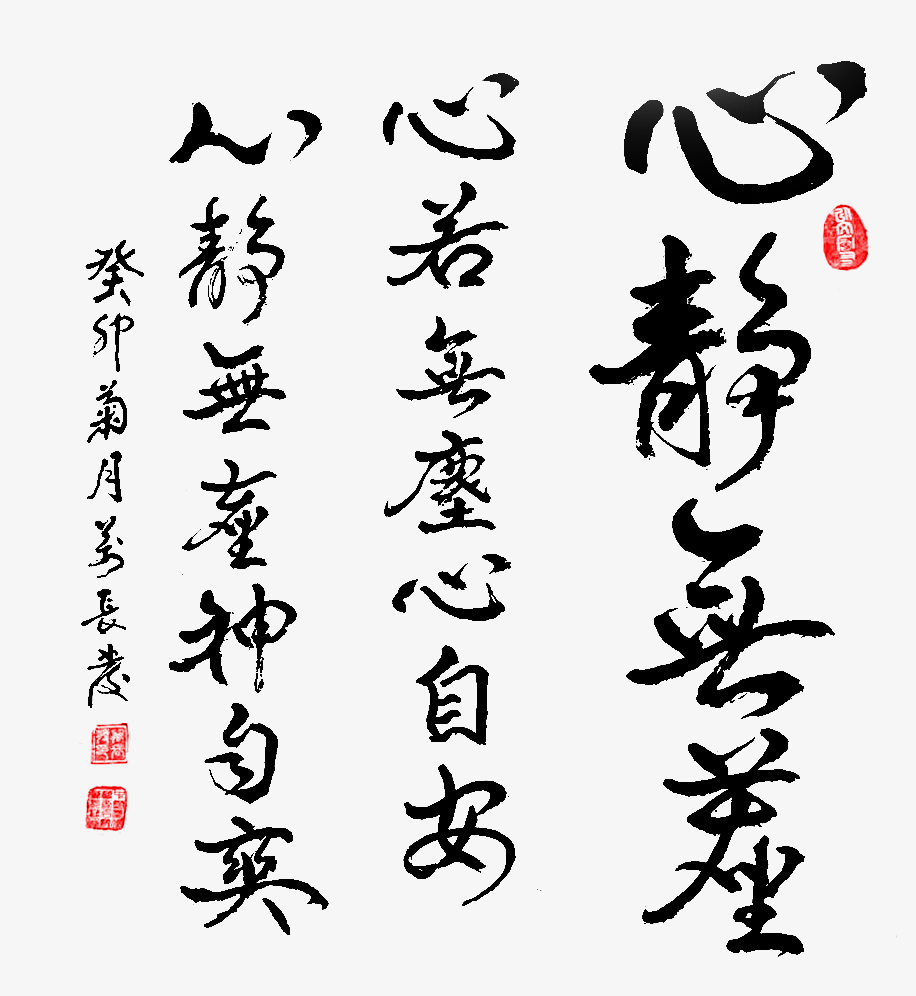 心靜無塵
心若無塵心自安
心靜無塵神自爽
癸卯菊月万長慶